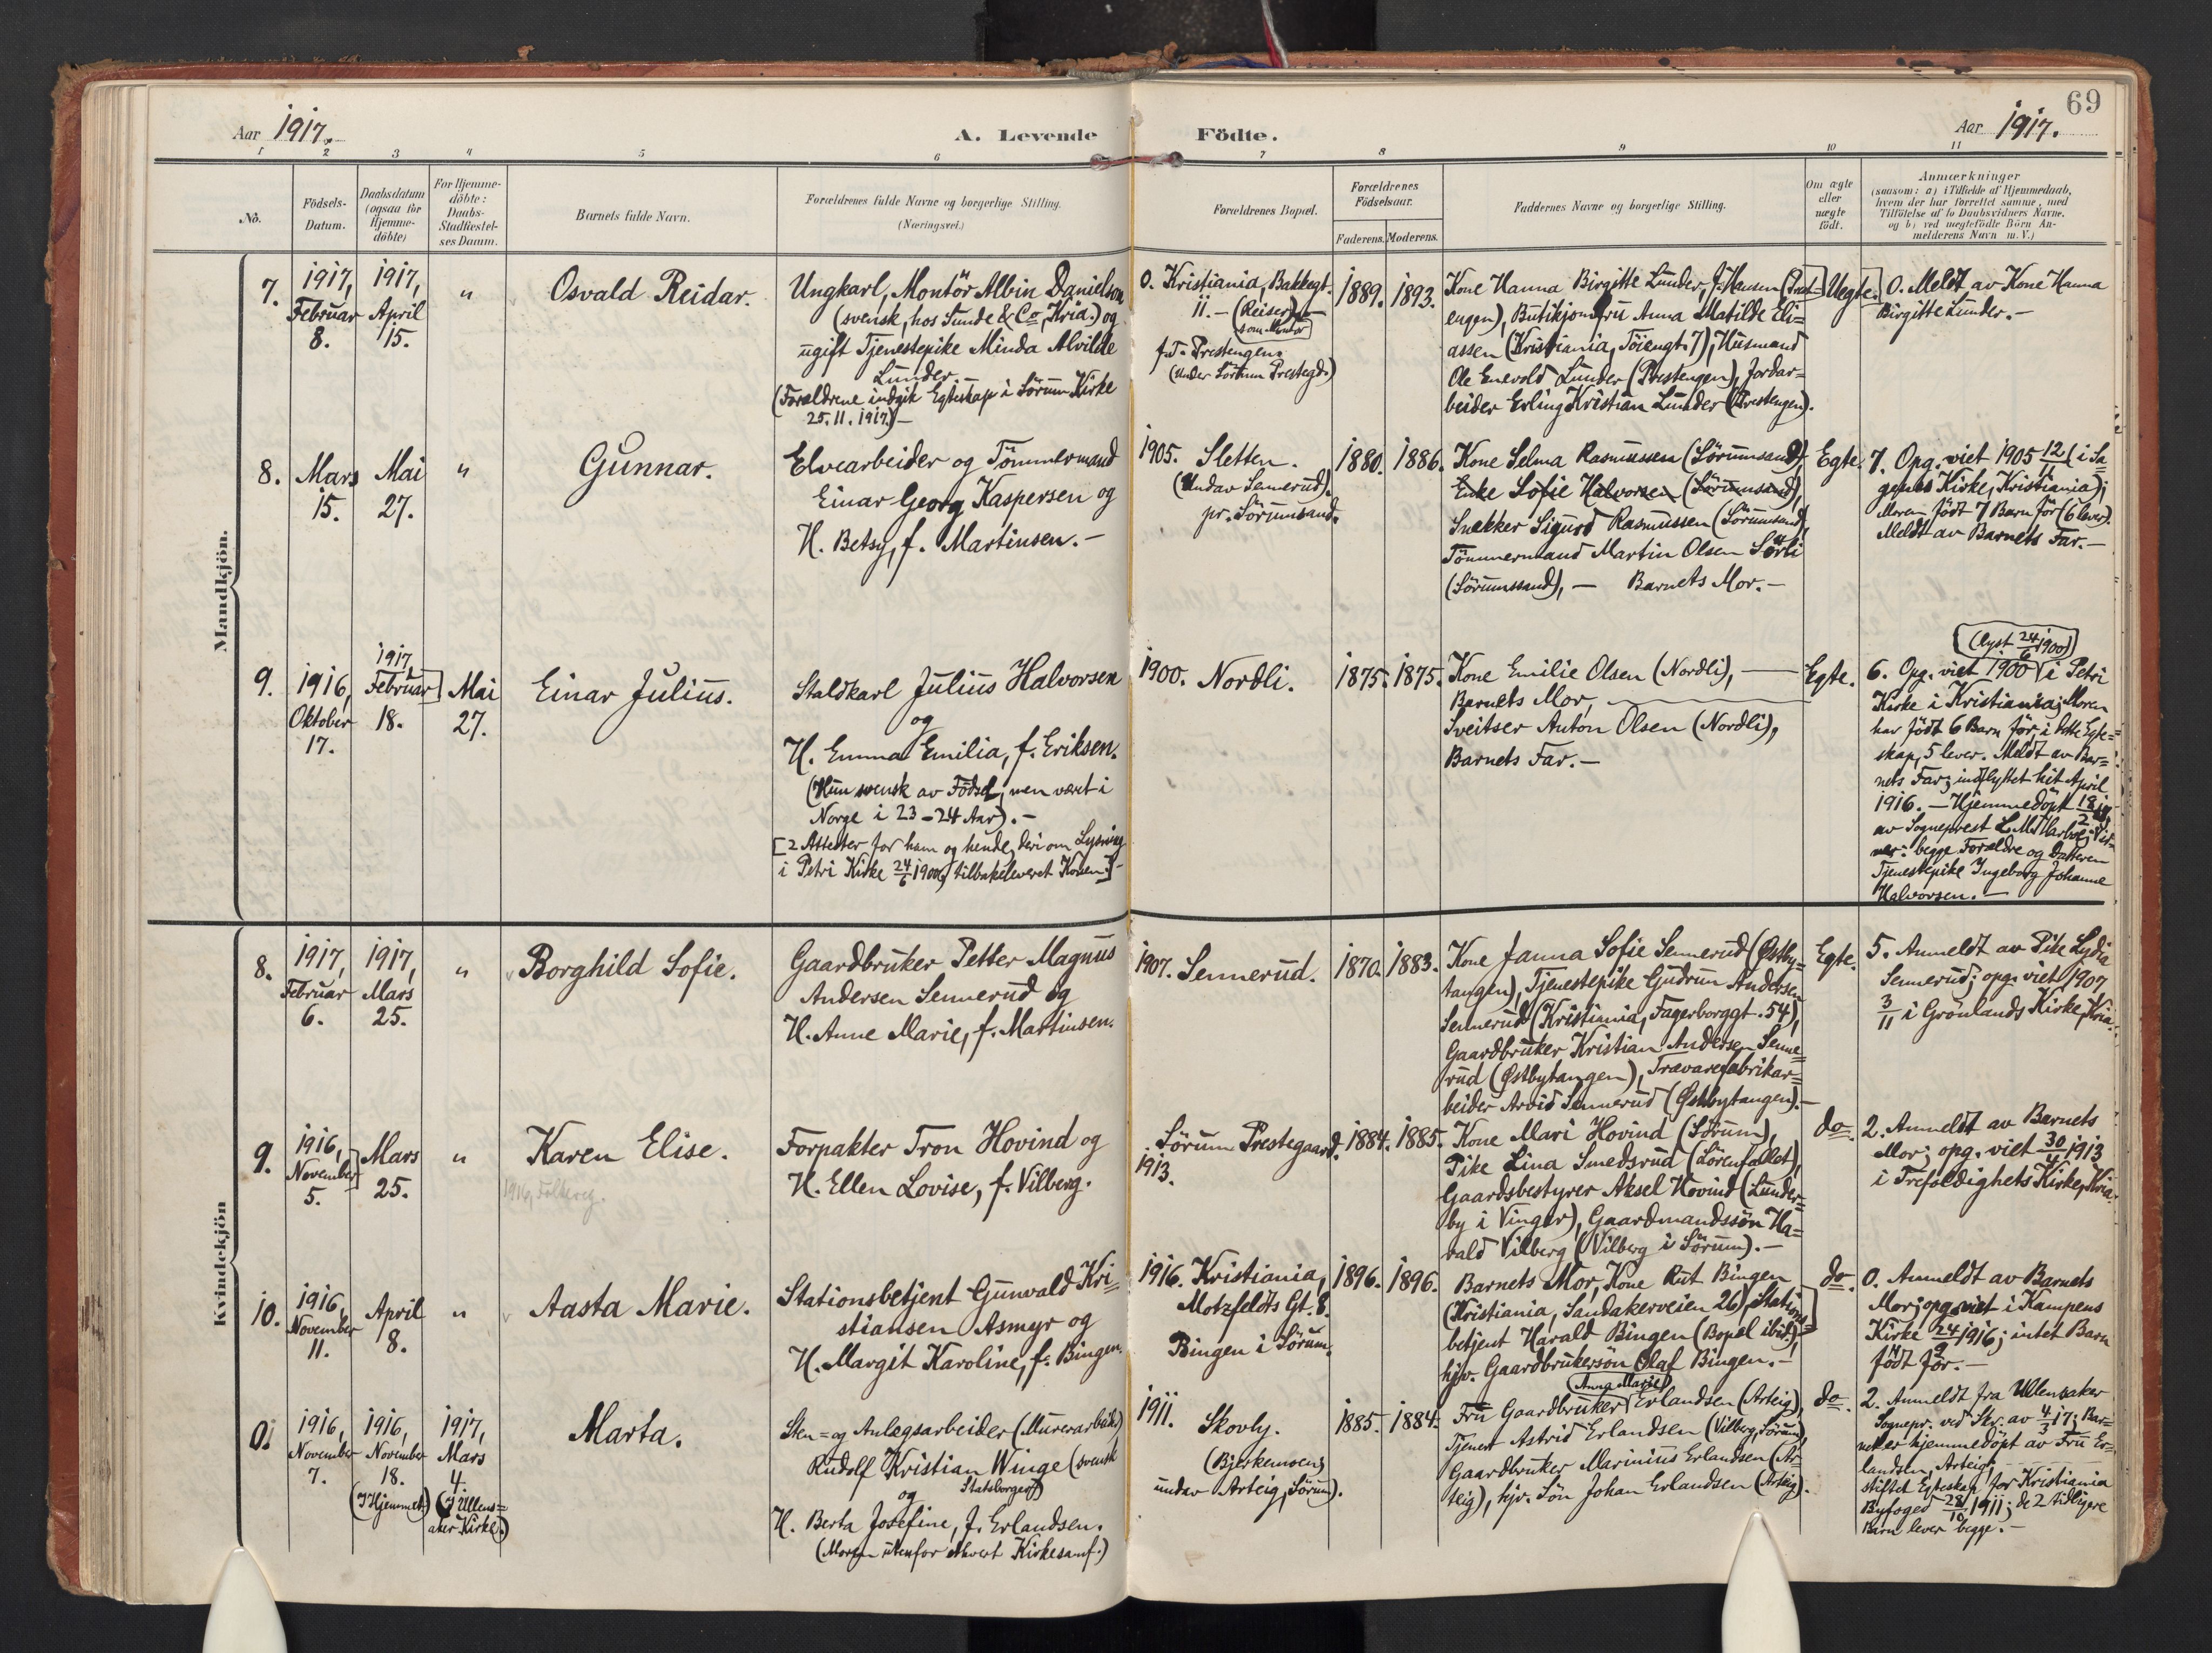 69
Aar 1917.
A. Levende Födte.
Aar 1917.
1 2 3 4 5 6 7 8 9 10 11
No.
Födsels-
Datum.
Daabsdatum
(ogsaa for
Hjemme-
döbte)
For Hjemme-
döbte:
Daabs-
Stadfæstel-
ses Datum.
Barnets fulde Navn.
Forældrenes fulde Navne og borgerlige Stilling.
(Næringsvei.)
Forældrenes Bopæl.
Forældrenes
Födselsaar.
Faderens. Moderens.
Faddernes Navne og borgerlige Stilling.
Om ægte
eller
uægte
födt.
Anmærkninger
(saasom: a) i Tilfælde af Hjemmedaab,
hvem der har forrettet samme, med
Tilföielse af to Daabsvidners Navne.
og b) ved uægtefödte Börn An-
melderens Navn m. V.)
Mandkjön.
7.
1917,
Februar
8.
1917,
April
15.
"
Osvald Reidar.
Ungkarl, Montör Albin Danielson
(svensk, hos Sunde & Co, Kria.) og
ugift Tjenestepike Minda Alvilde
Lunder.
(Forældrene indgik Egteskap i Sörum Kirke
25.11.1917.)—
0. Kristiania, Bakkegt.
11. — (Reiser)
som Montör
f.T. Prestengen.
(Under Sörum Prestegd.)
1889. 1893.
Kone Hanna Birgitte Lunder, f. Hansen (Prest-
engen), Butikjomfru Anna Matilde Eli=
assen (Kristiania, Töiengt. 7), Husmand
Ole Enevold Lunder (Prestengen), Jordar=
beider Erling Kristian Lunder (Prestengen).
Uegte.
0. Meldt av Kone Hanna
Birgitte Lunder. —
8.
Mars
15.
Mai
27.
"
Gunnar.
Elvearbeider og Tömmermand
Einar Georg Kaspersen og
H. Betsy, f. Martinsen. —
1905. Sletten.
(Undav Sennerud)
pr. Sörumsand.
1880. 1886.
Kone Selma Rasmussen (Sörumsand),
Enke Sofie Halvorsen (Sörumsand),
Snekker Sigurd Rasmussen (Sörumsand),
Tömmermand Martin Olsen Sörli
(Sörumssand), — Barnets Mor. —
Egte.
7. Opg. viet 1905 12/11 (i Sa
genes Kirke, Kristiania);
Moren födt 7 Barn för (6 lever).
Meldt av Barnets Far. —
9.
1916,
Oktober
17.
1917,
Februar
18.
Mai
27.
Einar Julius.
Staldkarl Julius Halvorsen
og
H. Emma Emilia, f. Eriksen.
(Hun svensk av Födsel, men været i
Norge i 23-24 Aar). —
[2 Attester for ham og hende, deri om Lysning
i Petri Kirke 24/6 1900, tilbakeleveret Konen.]—
1900. Nordli.
1875. 1875.
Kone Emilie Olsen (Nordli), —
Barnets Mor,
Sveitser Anton Olsen (Nordli),
Barnets Far. —
Egte.
(lyst 24/6 1900)
6. Opg. viet 1900 i Petri
Kirke i Kristiania; Moren
har födt 6 Barn för, i dette Egte=
skap, 5 lever. Meldt av Bar=
nets Far; indflyttet hit April
1916. — Hjemmedöpt 18/2 17
av Sogneprest
begge Forældre og Datteren
Tjenestepike Ingeborg Johanne
Halvorsen. —
Kvindekjön
8.
1917,
Februar
6.
1917,
Mars
25.
"
Borghild Sofie.
Gaardbruker Petter Magnus
Andersen Sennerud og
H. Anne Marie, f. Martinsen.
1907. Sennerud.
1870. 1883.
Kone Janna Sofie Sennerud (Østby=
tangen), Tjenestepike Gudrun Andersen
Sennerud (Kristiania, Fagerborggt. 54),
Gaardbruker Kristian Andersen Senne=
rud (Østbytangen), Trævarefabrikar=
beider Arvid Sennerud (Østbytangen). —
Egte.
5. Anmeldt av Pike Lydia
Sennerud; opg. viet 1907,
3/11 i Grönlands Kirke, Kria.
9.
1916,
November
5.
Mars
25.
"
Karen Elise.
1916, Folkereg.
Forpakter Tron Hovind og
H. Ellen Lovise, f. Vilberg.
Sörum Prestegaard.
1913.
1884. 1885.
Kone Mari Hovind (Sörum),
Pike Lina Smedsrud (Lörenfallet),
Gaardsbestyrer Aksel Hovind (Lunder=
by i Vinger), Gaardmandssön Ha=
rald Vilberg (Vilberg i Sörum). —
do.
2. Anmeldt av Barnets
Mor; opg. viet 30/4 1913
i Trefoldighets Kirke, Kria.
10.
1916,
November
11.
April
8.
"
Aasta Marie.
Stationsbetjent Gunvald Kri=
stiansen Asmyr og
H. Margit Karoline, f. Bingen.
1916. Kristiania,
Motzfeldts Gt. 8.
Bingen i Sörum.
1896. 1896.
Barnets Mor, Kone Rut Bingen
(Kristiania, Sandakerveien 26), Stations=
betjent Harald Bingen (Bopæl ibid.),
hjv. Gaardbrukersön Olaf Bingen. —
do.
0. Anmeldt av Barnets
Mor; opg. viet i Kampens
Kirke 24/9 1916; intet Barn
födt för. —
0.
1916,
November
7.
1916,
November
18.
(I Hjemmet)
1917,
Mars
4.
(I Ullens=
aker Kirke.)
Marta.
Sten= og Anlægsarbeider (Murerarbeider)
Rudolf Kristian Winge (svensk
Statsborger)
og
H. Berta Josefine, f. Erlandsen.
(Moren utenfor ethvert Kirkesamf.)
1911. Skovly.
(Bjerkemoen,
undav Arteig, Sörum).
1885. 1884.
Anna Marie
Fru Gaardbruker Erlandsen (Arteig),
Tjener Astrid Erlandsen (Vilberg, Sörum),
Gaardbruker Marinius Erlandsen (Ar=
teig), hjv. Sön Johan Erlandsen (Arteig).
do.
2. Anmeldt fra Ullensaker
Sognepr. ved Skr. av 4/3 17; Bar=
net er hjemmedöpt av Fru Er=
landsen, Arteig;
stiftet Egteskap for Kristiania
Byfoged 28/10 1911; de 2 tidligere
Barn lever begge. —